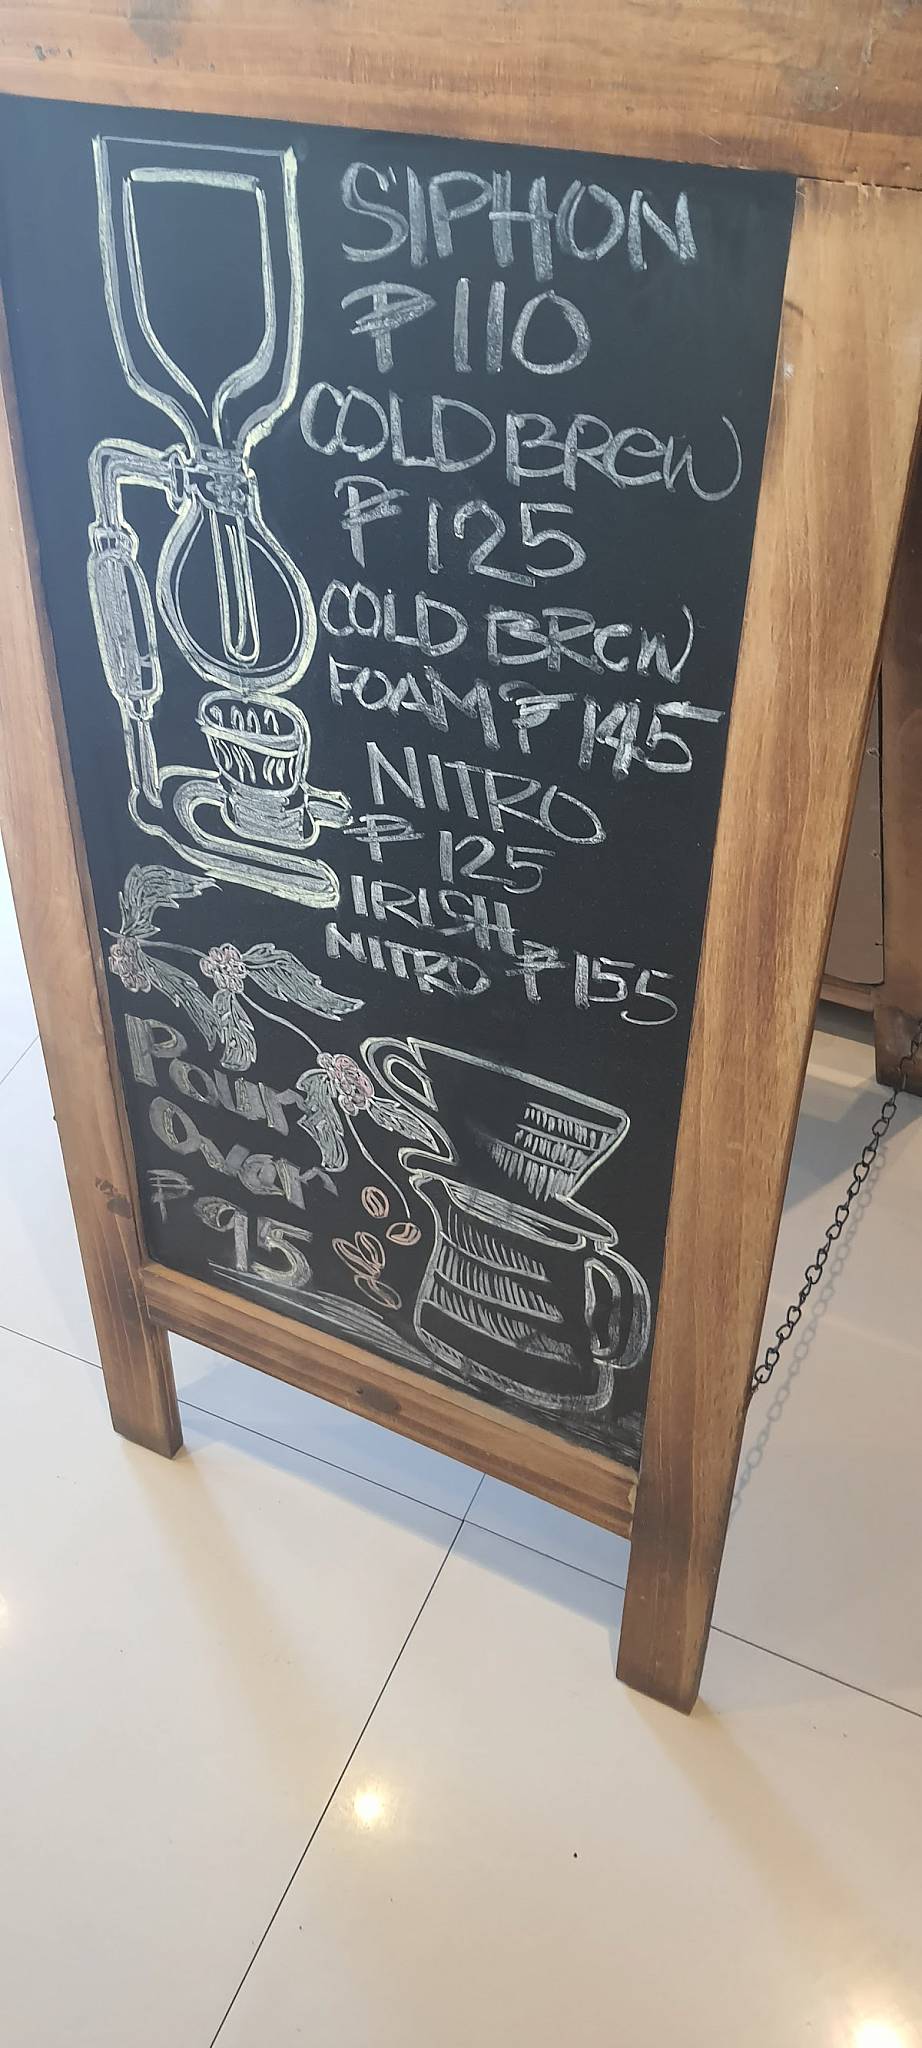 SIPHON
₱ 110
COLD BREW
₱ 125
COLD BREW
FOAM ₱ 145
NITRO
₱ 125
IRISH
NITRO ₱ 155
Pour
Over
₱ 95